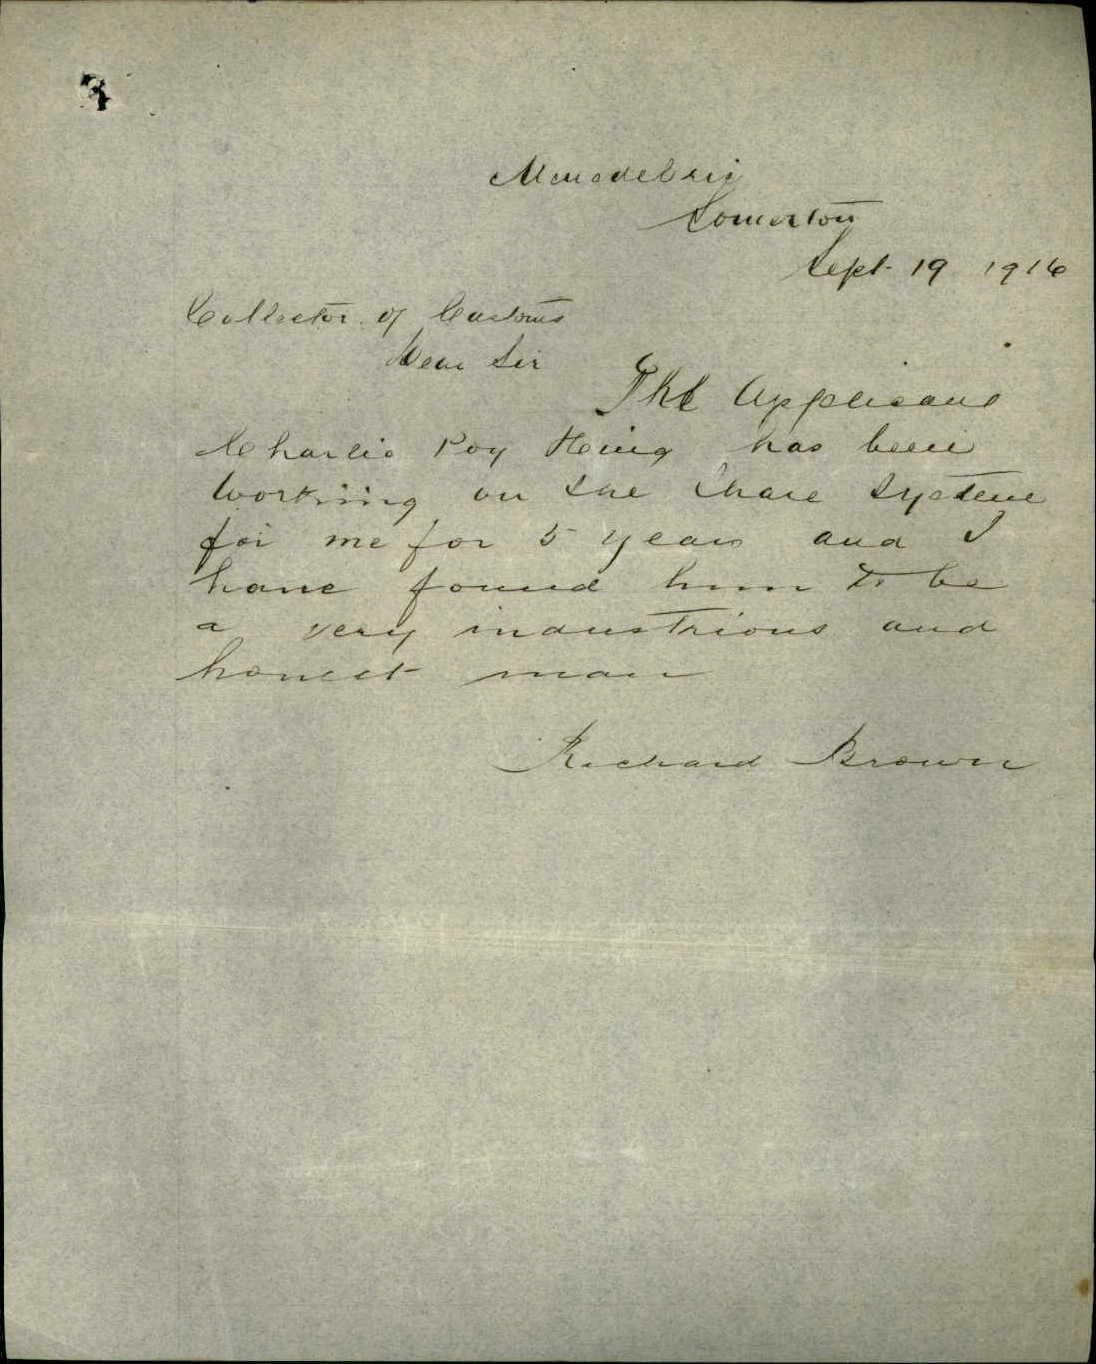 Somerton
Sept 19 1916
Collector of Customs
Dear Sir
The Applicant
Charlie Poy Heing has been
working on the share system
for me for 5 years and I
have found him to be
a very industrious and
honest man
Richard Brown